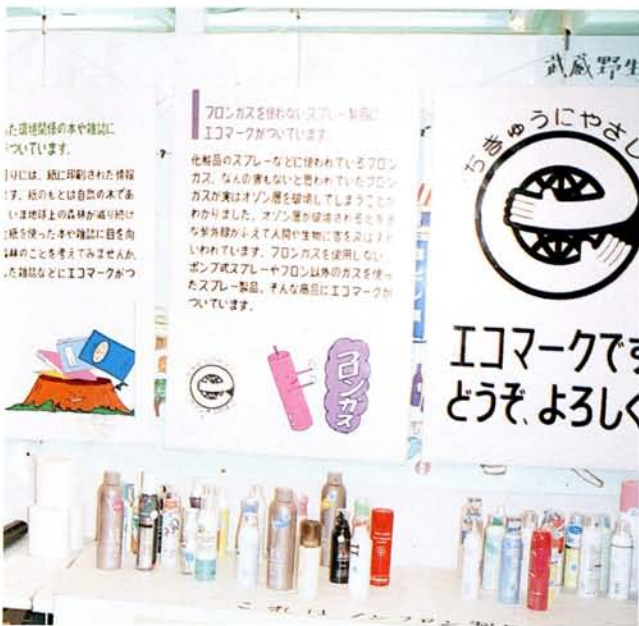 武蔵野生
た環境関係の本や雑誌に
がついています。
りには、紙に印刷された情報
ます。紙のもとは自然の木であ
いま地球上の森林が減り続け
生紙を使った本や雑誌に目を向
森林のことを考えてみませんか。
した雑誌などにエコマークがつ
フロンガスを使わないスプレー製品に
エコマークがついています。
化粧品のスプレーなどに使われているフロン
ガス、なんの害もないと思われていたフロン
ガスが実はオゾン層を破壊してしまうことが
わかりました。オゾン層が破壊されると有害
な紫外線がふえて人間や生物に害を及ぼすと
いわれています。フロンガスを使用しない、
ポンプ式スプレーやフロン以外のガスを使っ
たスプレー製品、そんな商品にエコマークが
ついています。
フロンガス
ちきゅうにやさし
エコマークです
どうぞ、よろしく
これはノンフロン製